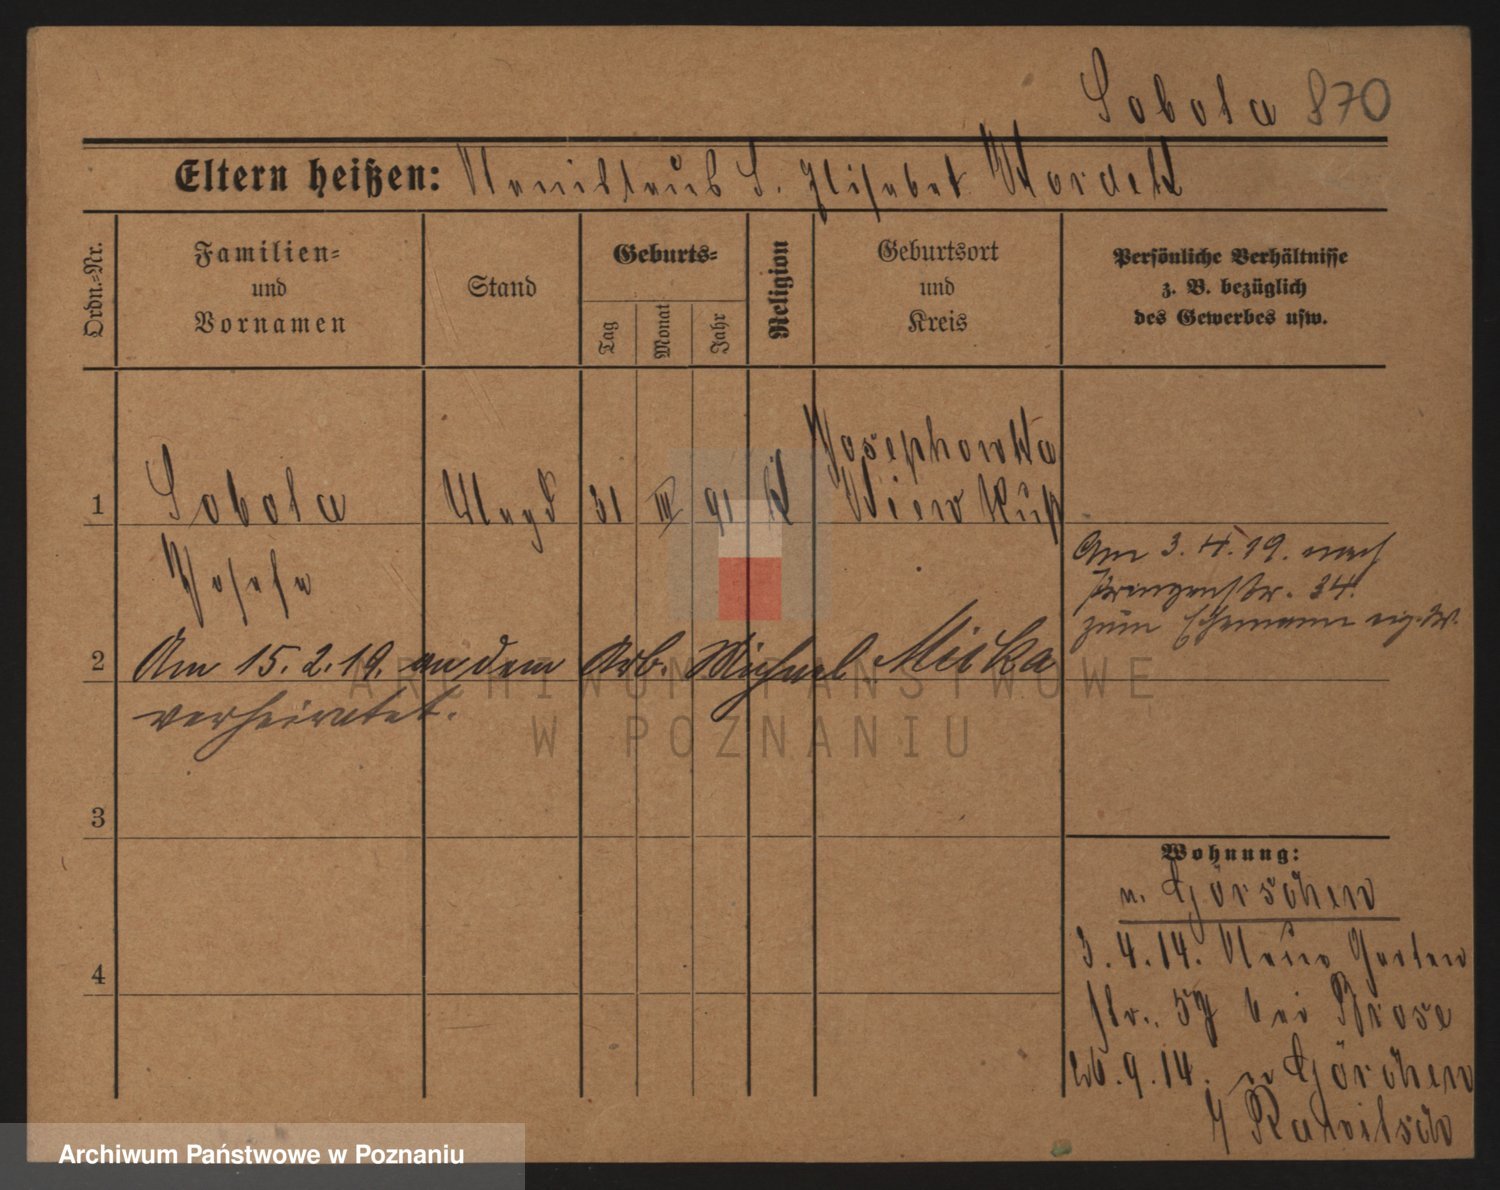 Sobota 870
Eltern heißen: Stanislaus S. Elisabet
Ordn.=Nr.
Familien=
und
Vornamen
Stand
Geburts=
Tag
Monat
Jahr
Religion
Geburtsort
und
Kreis
Persönliche Verhältnisse
z. B. bezüglich
des Gewerbes usw.
Josephowka
1 Sobota Magd 31 III 91 K
Josefa
Am 3. 4. 19. nach
Prinzenstr. 34.
zum Ehemann
2 Am 15. 2. 19. an dem Arb. Michael Miska
verheiratet.
3
4
Wohnung:
n. Görschen
3. 4. 14. Neue Garten
str. 59 bei Brose
26. 9. 14. n Görchen
Rawitsch
ARCHIWUM PAŃSTWOWE
W POZNANIU
Archiwum Państwowe w Poznaniu